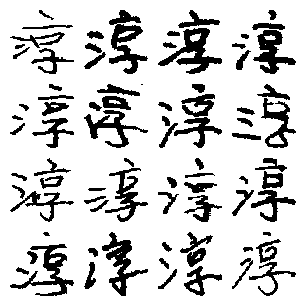 淳淳淳淳
淳淳淳淳
淳淳淳淳
淳淳淳淳